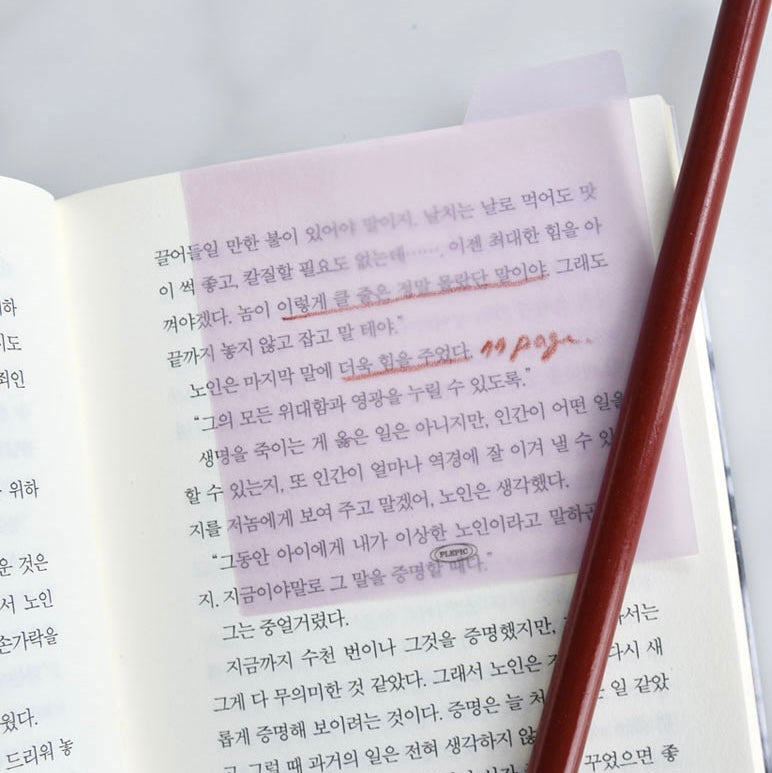 하
도
죄인
위하
운 것은
서 노인
손가락을
웠다.
드리워 놓
끌어들일 만한 불이 있어야 말이지. 날치는 날로 먹어도 맛
이 썩 좋고, 칼질할 필요도 없는데……. 이젠 최대한 힘을 아
껴야겠다. 놈이 이렇게 클 줄은 정말 몰랐단 말이야. 그래도
끝까지 놓지 않고 잡고 말 테야.”
노인은 마지막 말에 더욱 힘을 주었다. 11 page.
“그의 모든 위대함과 영광을 누릴 수 있도록.”
생명을 죽이는 게 옳은 일은 아니지만, 인간이 어떤 일을
할 수 있는지, 또 인간이 얼마나 역경에 잘 이겨 낼 수 있
지를 저놈에게 보여 주고 말겠어, 노인은 생각했다.
“그동안 아이에게 내가 이상한 노인이라고 말하곤
PLEPIC
지. 지금이야말로 그 말을 증명할 때다.”
그는 중얼거렸다.
지금까지 수천 번이나 그것을 증명했지만, 서는
그게 다 무의미한 것 같았다. 그래서 노인은 다시 새
롭게 증명해 보이려는 것이다. 증명은 늘 처 일 같았
고 그럴 때 과거의 일은 전혀 생각하지 않
꾸었으면 좋